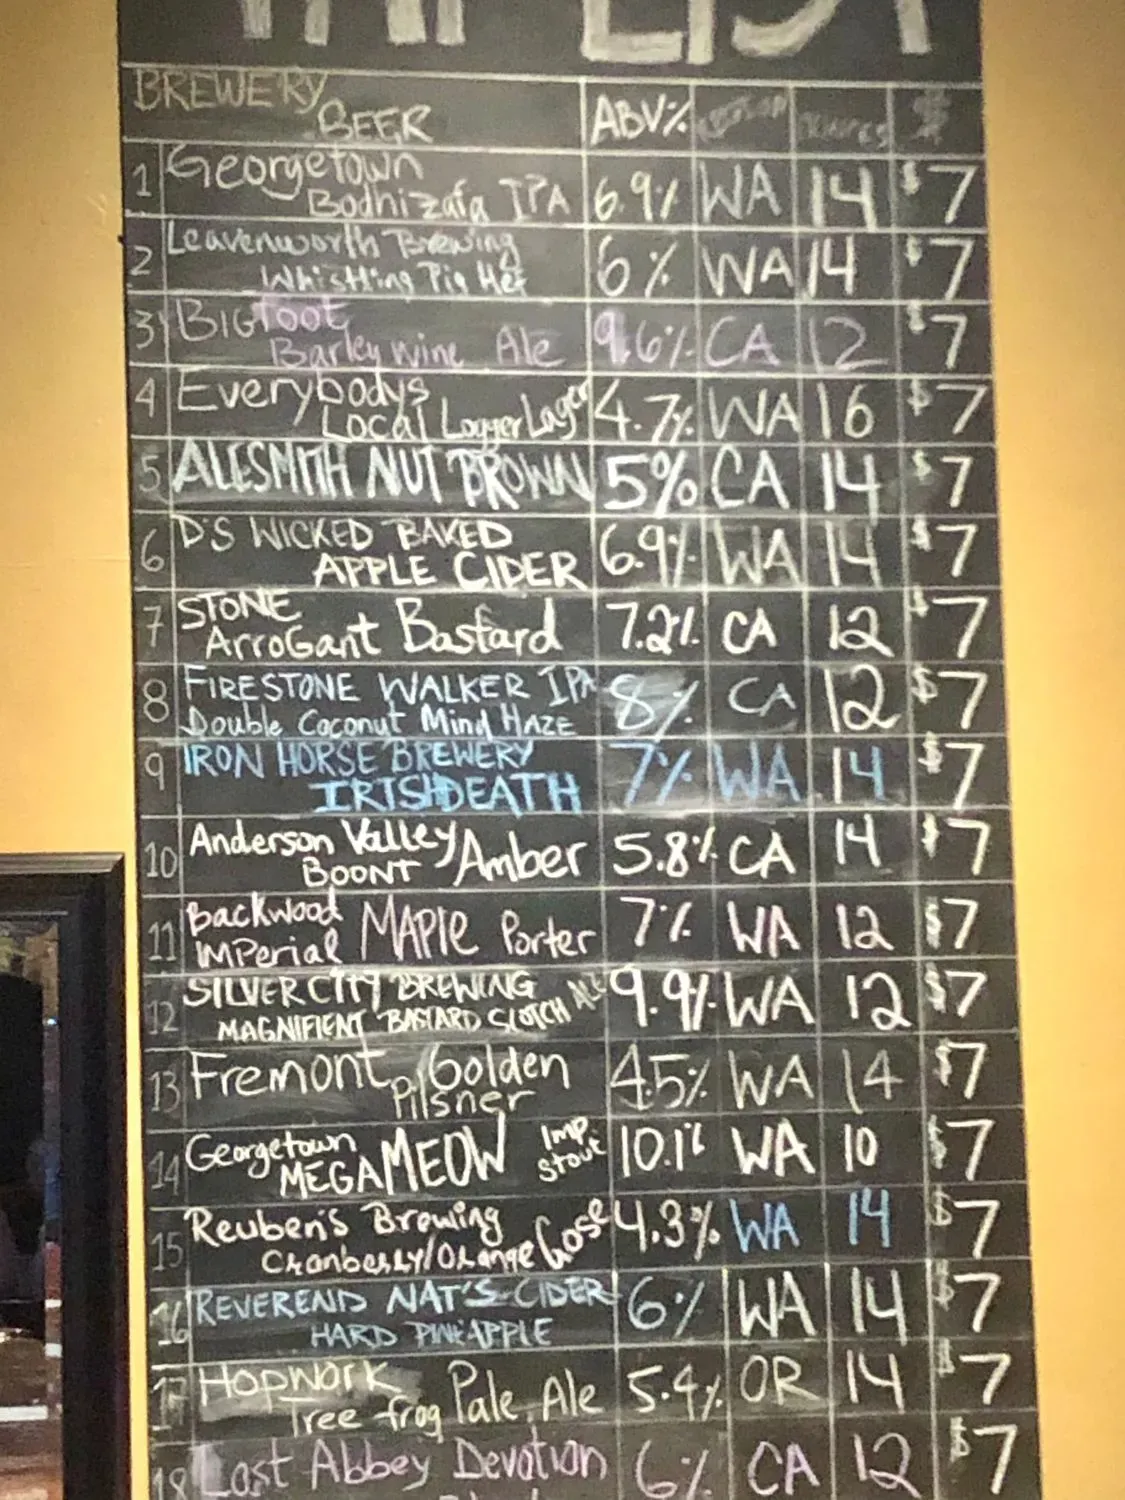 TAP LIST
BREWERY
BEER ABV% $
1 Georgetown
Bodhizafa IPA 6.9% WA 14 $7
2 Leavenworth Brewing
Whistling Pig Hef 6% WA 14 $7
3 BIGfoot
Barley wine Ale 9.6% CA 12 $7
4 Everybodys
Local Logger Lager 4.7% WA 16 $7
5 ALESMITH NUT BROWN 5% CA 14 $7
6 D'S WICKED BAKED
APPLE CIDER 6.9% WA 14 $7
7 STONE
ArroGant Bastard 7.2% CA 12 $7
8 FIRESTONE WALKER IPA
Double Coconut Mind HAZE 8% CA 12 $7
9 IRON HORSE BREWERY
IRISHDEATH 7% WA 14 $7
10 Anderson Valley
BOONT Amber 5.8% CA 14 $7
11 Backwood
IMPerial MAPlE Porter 7% WA 12 $7
12 SILVER CITY BREWING
MAGNIFIENT BASTARD SCOTCH ALE 9.9% WA 12 $7
13 Fremont Golden
Pilsner 4.5% WA 14 $7
14 Georgetown
MEGAMEOW Imp. Stout 10.1% WA 10 $7
15 Reuben's Brewing
Cranberry/Orange Gose 4.3% WA 14 $7
16 REVEREND NAT'S CIDER
HARD PINEAPPLE 6% WA 14 $7
17 HOPWORK
Tree frog Pale Ale 5.4% OR 14 $7
18 Lost Abbey Devotion 6% CA 12 $7